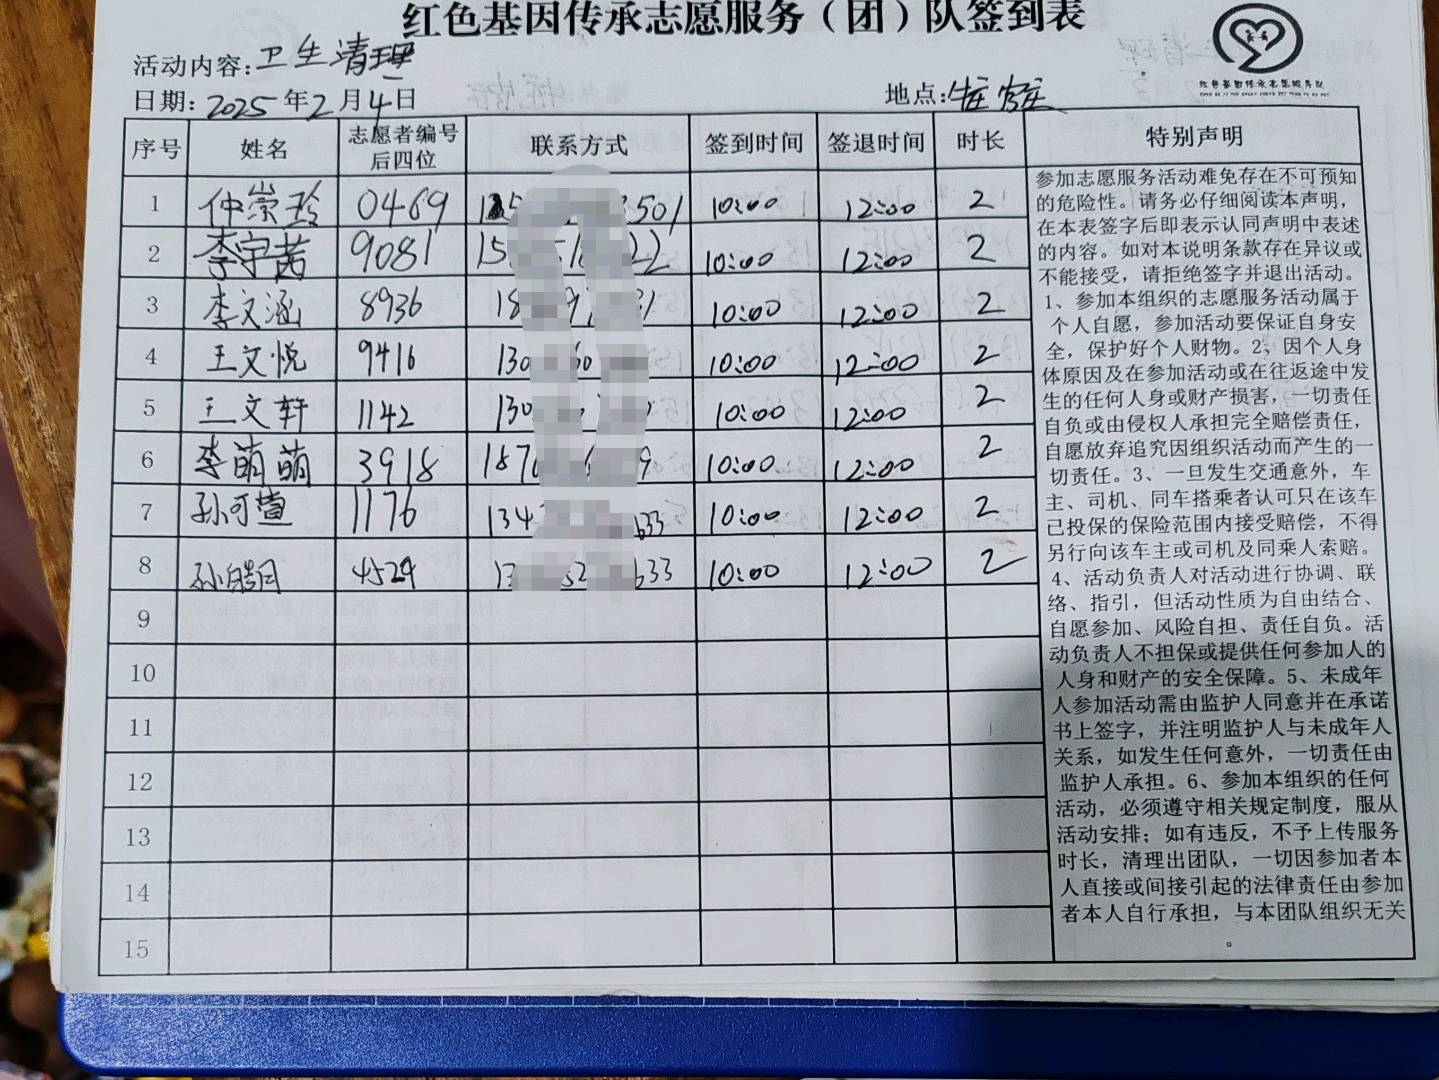 红色基因传承志愿服务（团）队签到表
活动内容：卫生清理
日期：2025年2月4日
地点：
红色基因传承志愿服务队
序号 姓名 志愿者编号后四位 联系方式 签到时间 签退时间 时长 特别声明
1 仲崇玲 0469 10:00 12:00 2
2 李宇茜 9081 10:00 12:00 2
3 李文涵 8936 10:00 12:00 2
4 王文悦 9416 10:00 12:00 2
5 王文轩 1142 10:00 12:00 2
6 李萌萌 3918 10:00 12:00 2
7 孙可萱 1176 10:00 12:00 2
8 孙皓月 4529 10:00 12:00 2
9
10
11
12
13
14
15
参加志愿服务活动难免存在不可预知
的危险性。请务必仔细阅读本声明，
在本表签字后即表示认同声明中表述
的内容。如对本说明条款存在异议或
不能接受，请拒绝签字并退出活动。
1、参加本组织的志愿服务活动属于
个人自愿，参加活动要保证自身安
全，保护好个人财物。2、因个人身
体原因及在参加活动或在往返途中发
生的任何人身或财产损害，一切责任
自负或由侵权人承担完全赔偿责任，
自愿放弃追究因组织活动而产生的一
切责任。3、一旦发生交通意外，车
主、司机、同车搭乘者认可只在该车
已投保的保险范围内接受赔偿，不得
另行向该车主或司机及同乘人索赔。
4、活动负责人对活动进行协调、联
络、指引，但活动性质为自由结合、
自愿参加、风险自担、责任自负。活
动负责人不担保或提供任何参加人的
人身和财产的安全保障。5、未成年
人参加活动需由监护人同意并在承诺
书上签字，并注明监护人与未成年人
关系，如发生任何意外，一切责任由
监护人承担。6、参加本组织的任何
活动，必须遵守相关规定制度，服从
活动安排；如有违反，不予上传服务
时长，清理出团队，一切因参加者本
人直接或间接引起的法律责任由参加
者本人自行承担，与本团队组织无关
。